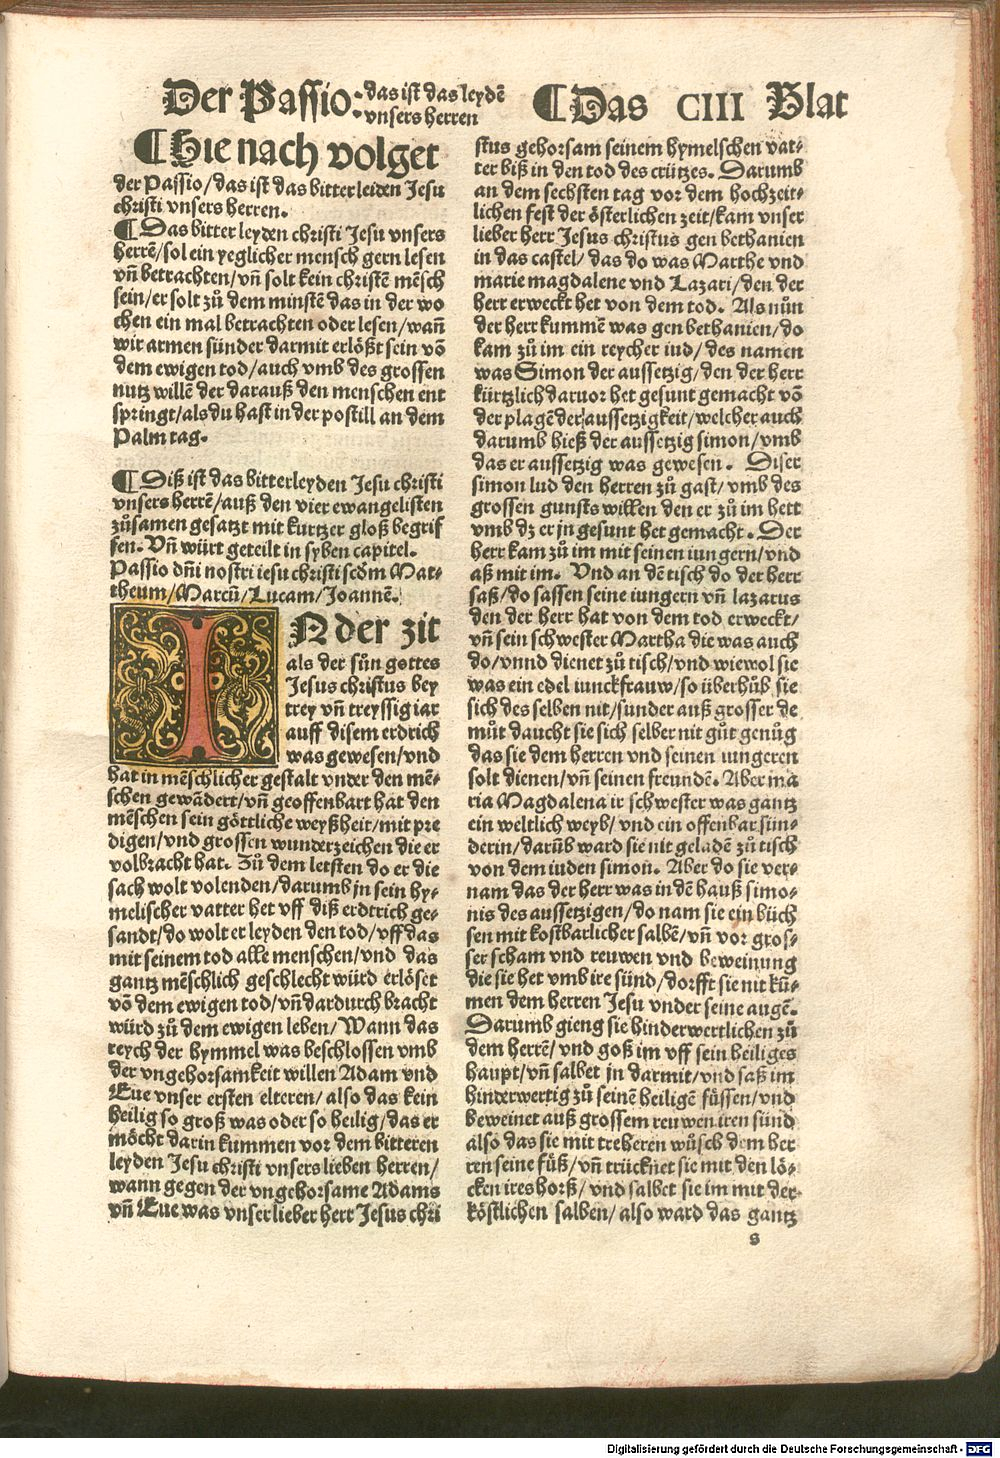 Der Passio: das ist das leydē
vnsers herren
¶ Das CIII Blat
¶ Hie nach volget
der Passio/das ist das bitter leiden Jesu
christi vnsers herren.
¶ Das bitter leyden christi Jesu vnsers
herrē/sol ein yeglicher mensch gern lesen
vn̄ betrachten/vn̄ solt kein christē mēsch
sein/er solt zů dem minstē das in der wo
chen ein mal betrachten oder lesen/wan̄
wir armen sünder darmit erlößt sein vō
dem ewigen tod/auch vmb des grossen
nutz willē der darauß den menschen ent
springt/als du hast in der postill an dem
Palm tag.
¶ Diß ist das bitter leyden Jesu christi
vnsers herrē/auß den vier ewangelisten
zůsamen gesatzt mit kurtzer gloß begrif
fen. Vn̄ würt geteilt in syben capitel.
Passio dn̄i nostri iesu christi scďm Mat⸗
theum/Marcū/Lucam/Joannē.
IN der zit
als der sün gottes
Jesus christus bey
trey vn̄ treyssig iar
auff disem erdrich
was gewesen/vnd
hat in mēschlicher gestalt vnder den mē⸗
schen gewādert/vn̄ geoffenbart hat den
mēschen sein göttliche weyßheit/mit pre
digen/vnd grossen wunderzeichen die er
volbracht hat. Zů dem letsten do er die
sach wolt volenden/darumb jn sein hy⸗
melischer vatter het vff diß erdtrich ge⸗
sandt/do wolt er leyden den tod/vff das
mit seinem tod alle menschen/vnd das
gantz mēschlich geschlecht würd erlöset
vō dem ewigen tod/vn̄ dardurch bracht
würd zů dem ewigen leben/Wann das
reych der hymmel was beschlossen vmb
der vngehorsamkeit willen Adam vnd
Eue vnser ersten elteren/also das kein
heilig so groß was oder so heilig/das er
möcht darin kummen vor dem bitteren
leyden Jesu christi vnsers lieben herren/
wann gegen der vngehorsame Adams
vn̄ Eue was vnser lieber herr Jesus chri
stus gehorsam seinem hymelschen vat⸗
ter biß in den tod des crützes. Darumb
an dem sechsten tag vor dem hochzeit⸗
lichen fest der österlichen zeit/kam vnser
lieber herr Jesus christus gen bethanien
in das castel/das do was Marthe vnd
marie magdalene vnd Lazari/den der
herr erweckt het von dem tod. Als nůn
der herr kummē was gen bethanien/do
kam zů im ein reycher iud/des namen
was Simon der aussetzig/den der herr
kürtzlich daruor het gesunt gemacht vō
der plagē der aussetzigkeit/welcher auch
darumb hieß der aussetzig simon/vmb
das er aussetzig was gewesen. Diser
simon lud den herren zů gast/vmb des
grossen gunsts willen den er zů im hett
vmb dz er jn gesunt het gemacht. Der
herr kam zů im mit seinen iungern/vnd
aß mit im. Vnd an dē tisch do der herr
saß/do sassen seine iungern vn̄ lazarus
den der herr hat von dem tod erweckt/
vn̄ sein schwester Martha die was auch
do/vnnd dienet zů tisch/vnd wiewol sie
was ein edel iunckfrauw/so überhůb sie
sich des selben nit/sunder auß grosser de
můt daucht sie sich selber nit gůt genůg
das sie dem herren vnd seinen iungeren
solt dienen/vn̄ seinen freundē. Aber ma
ria Magdalena ir schwester was gantz
ein weltlich weyb/vnd ein offenbar sün⸗
derin/darūb ward sie nit geladē zů tisch
von dem iuden simon. Aber do sie ver⸗
nam das der herr was in dē hauß simo⸗
nis des aussetzigen/do nam sie ein büch
sen mit kostbarlicher salbē/vn̄ vor gros⸗
ser scham vnd reuwen vnd beweinung
die sie het vmb ire sünd/dorfft sie nit kū⸗
men dem herren Jesu vnder seine augē.
Darumb gieng sie hinderwertlichen zů
dem herrē/vnd goß im vff sein heiliges
haupt/vn̄ salbet jn darmit/vnd saß im
hinderwertig zů seinē heiligē füssen/vnd
beweinet auß grossem reuwen iren sünd
also das sie mit treheren wůsch dem her
ren seine füß/vn̄ trücknet sie mit den lö⸗
cken ires horß/vnd salbet sie im mit der
köstlichen salben/also ward das gantz
s
Digitalisierung gefördert durch die Deutsche Forschungsgemeinschaft - DFG